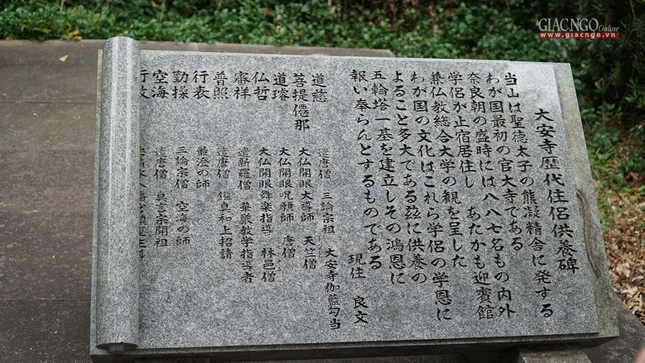 GIACNGO Online
www.giacngo.vn
大安寺歴代住侶供養碑
当山は聖徳太子の熊凝精舎に発する
わが国最初の官大寺である
奈良朝の盛時には八八七名もの内外
学侶が止宿居住し あたかも迎賓館
兼仏教総合大学の観を呈した
わが国の文化はこれら学侶の学恩に
よること多大である茲に供養の
五輪塔一基を建立しその鴻恩に
報い奉らんとするものである
現住 良文
道慈 遣唐僧 三論宗祖 大安寺伽藍勾当
菩提僊那 大仏開眼大導師 天竺僧
道璿 大仏開眼呪願師 唐僧
仏哲 大仏開眼舞楽指導 林邑僧
審祥 遣新羅僧 華厳教学指導者
普照 遣唐僧 鑑真和上招請
行表 最澄の師
勤操 三論宗僧 空海の師
空海 遣唐僧 真言宗開祖
行教